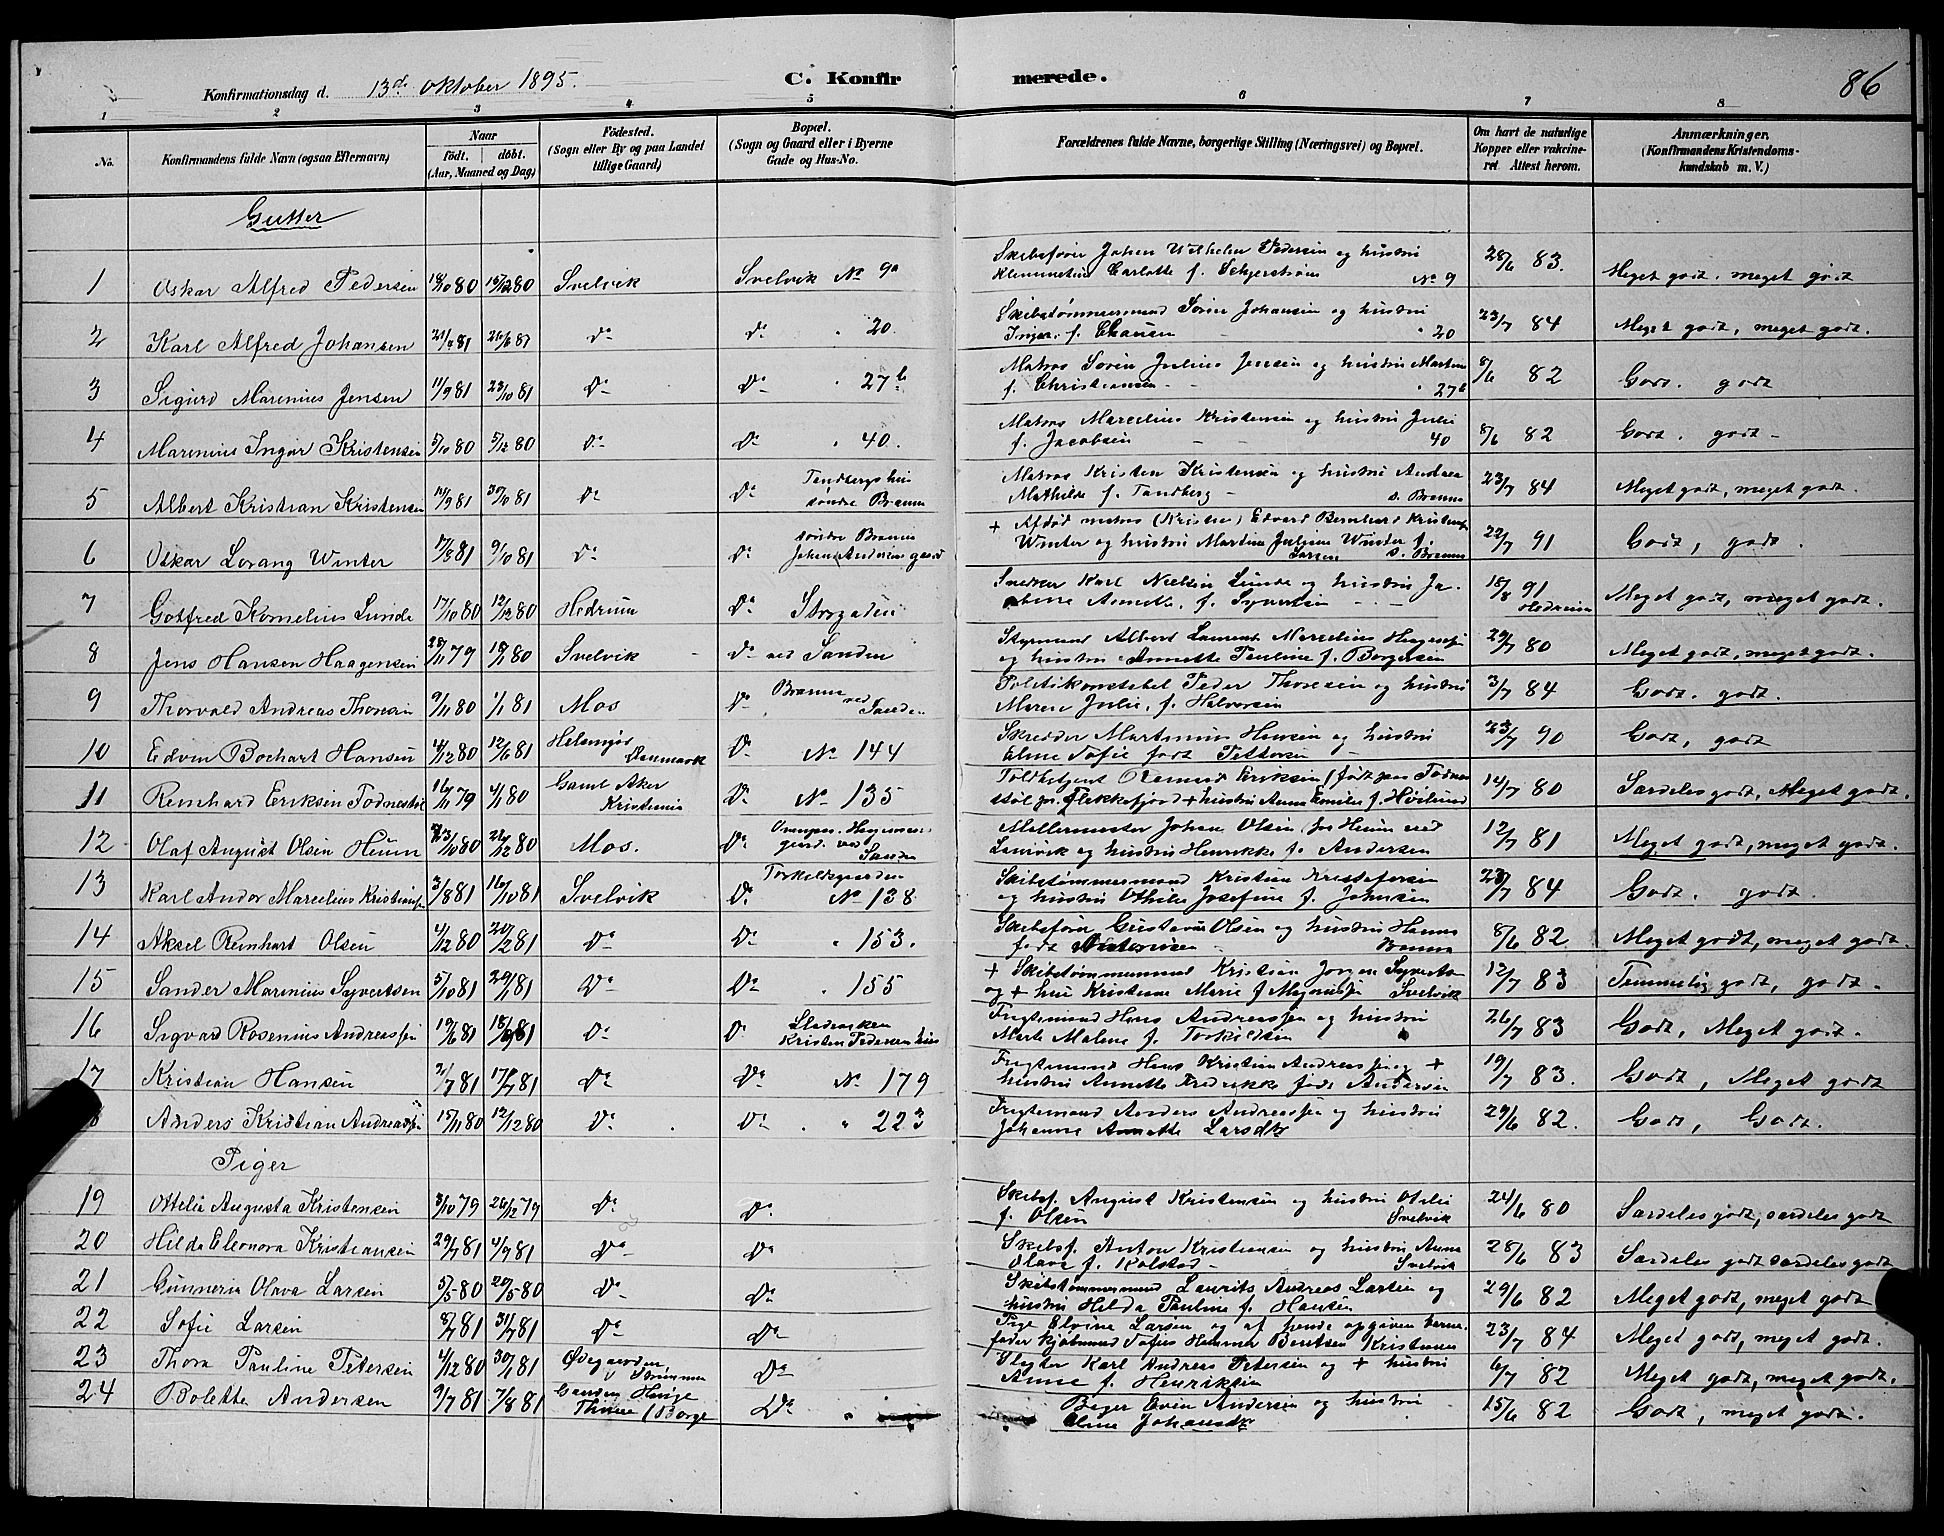 Konfirmationsdag d. 13de Oktober 1895.
C. Konfirmerede.
86
1 2 3 4 5 6 7 8
No.
Konfirmandens fulde Navn (ogsaa Efternavn)
Naar
født. døbt.
(Aar, Maaned og Dag)
Fødested.
(Sogn eller By og paa Landet
tillige Gaard)
Bopæl.
(Sogn og Gaard eller i Byerne
Gade og Hus-No.
Forældrenes fulde Navne, borgerlige Stilling (Næringsvei) og Bopæl.
Om havt de naturlige
Kopper eller vakcine-
ret Attest herom.
Anmærkninger.
(Konfirmandens Kristendoms-
kundskab m. V.)
Gutter
1 Oskar Alfred Pedersen 18/10 80 19/12 80 Svelvik Svelvik No 9a
Skibsfører Johan Wilhelm Pedersen og hustru
Klemmetine Carlotte f. No 9 28/6 83. Meget godt. meget godt
2 Karl Alfred Johansen 21/4 81 26/6 81 Do Do " 20.
Skibstømmermand Søren Johansen og hustru
Inger f. Clausen " 20 23/7 84 Meget godt, meget godt.
3 Sigurd Marenius Jensen 11/9 81 23/10 81 Do Do " 27b
Matros Søren Julius Jensen og hustru Martine
f. Christiansen " 27b 8/6 82 Godt. godt
4 Marenius Ingvar Kristensen 5/10 80 5/12 80 Do Do " 40.
Matros Marcelius Kristensen og hustru Julie
f. Jacobsen 40 8/6 82 Godt. godt -
5 Albert Kristian Kristensen 14/9 81 30/10 81 Do Do Tandbergs hus
søndre Brenna
Matros Kristen Kristensen og hustru Andrea
Mathilde f. Tandberg - s. Brenna 23/7 84 Meget godt, meget godt.
6 Oskar Lorang Winter 17/8 81 9/10 81 Do Do søndre Brenna
Johan Andersens gaard
+ Afdød matros (Kristen) Edvard Bernhard Kristensen
Winter og hustru Martine Juliane Winter f.
Larsen s. Brenna 22/7 91 Godt, godt.
7 Gotfred Kornelius Lunde 17/10 80 12/12 80 Hedrum Do Storgaden
Snedker Karl Nielsen Lunde og hustru Ja-
cobine Annette, f. Syversen 18/8 91 Hedrum Meget godt, meget godt.
8 Jens Hansen Haagensen 28/11 79 18/1 80 Svelvik Do ved Sanden
Styrmand Albert Laurents Marcelius Haagensen
og hustru Annette Pauline f. Borgersen 29/7 80 Meget godt, meget godt.
9 Thorvald Andreas Thoresen 9/11 80 1/1 81 Mos Do Brenna ved Sanden
Politikonstabel Peder Thoresen og hustru
Maren Julie, f. Halvorsen 3/7 84 Godt. godt.
10 Edvin Bochart Hansen 4/12 80 12/6 81 Helsingør
Danmark Do No 144
Skredder Martinius Hansen og hustru
Elene Sofie født Pettersen 23/7 90 Godt, godt
11 Reinhard Eriksen Todnestøl 16/11 79 4/1 80 Gaml Aker
Kristiania Do No 135
Toldbetjent Eriksen (født paa Todnes-
støl pr. Flekkefjord + hustru Anna Emilie f. Høilund 14/7 80 Særdeles godt, Meget godt.
12 Olaf August Olsen Heum 23/10 80 26/12 80 Mos. Do
gaard. ved
Sanden
Møllermester Johan Olsen fra Heum ved
Larvik og hustru Henrikke f. Andersen 12/7 81 Meget godt, meget godt.
13 Karl Andor Marcelius Kristiansen 3/8 81 16/10 81 Svelvik Do Torkildsgaarden
No 138
Skibstømmermand Kristian Kristofersen
og hustru Othilie Josefine f. Johnsen 23/7 84 Godt. godt.
14 Aksel Reinhart Olsen 4/12 80 20/2 81 Do Do " 153.
Skibsfører Gustav Olsen og hustru Hanna
født Brenna 8/6 82. Meget godt, meget godt.
15 Sander Marenius Syvertsen 5/10 81 29/1 81 Do Do " 155
+ Skibstømmermand Kristian Jørgen Syvertsen
og + hus Kristiane Marie f. Magnussen Svelvik 12/7 83 Temmelig godt, godt.
16 Sigvard Rosenius Andreassen 19/6 81 18/9 81 Do Do
Kristen Pedersens hus
Fragtemand Hans Andreassen og hustru
Marte Malene f. Torkildsen 26/7 83 Godt, Meget godt.
17 Kristian Hansen 2/7 81 17/7 81 Do Do No 179
Fragtemand Hans Kristian Andreassen og +
hustru Annette Fredrikke født Andersen 19/7 83. Godt, Meget godt
8 Anders Kristian Andreassen 15/11 80 12/12 80 Do Do " 223
Fragtemand Anders Andreassen og hustru
Johanne Annette Larsdtr 29/6 82. Godt, Godt.
Piger
19 Ottelie Augusta Kristensen 3/10 79 26/12 79 Do Do
Skibsf. August Kristensen og hustru Otelie
f. Olsen Svelvik 24/6 80 Særdeles godt, særdeles godt
20 Hilda Eleonora Kristiansen 29/7 81 4/9 81 Do Do
Skibsf. Anton Kristiansen og hustru Anna
Olava f. Kolstad Svelvik 28/6 83 Særdeles godt særdeles godt
21 Gunneria Olava Larsen 5/5 80 20/5 80 Do Do
Skibstømmermand Laurits Andreas Larsen og
hustru Hilda Pauline f. Hansen 29/6 82 Meget godt, meget godt
22 Sofie Larsen 8/7 81 31/7 81 Do Do
Pige Elvine Larsen og af hende opgiven barne-
fader kjøbmand Tofius Bentsen Kristiania 23/7 84 Meget godt, meget godt.
23 Thora Pauline Petersen 4/12 80 30/1 81 Ødegaarden,
Strømmen Do
Slagter Karl Andreas Petersen og + hustru
Anne f. Henriksen 6/7 82 Meget godt, meget godt.
24 Bolette Andersen 9/7 81 7/8 81
i Borge Do "
Bager Even Andersen og hustru
Eline Johansdtr 15/6 82 Godt, meget godt.